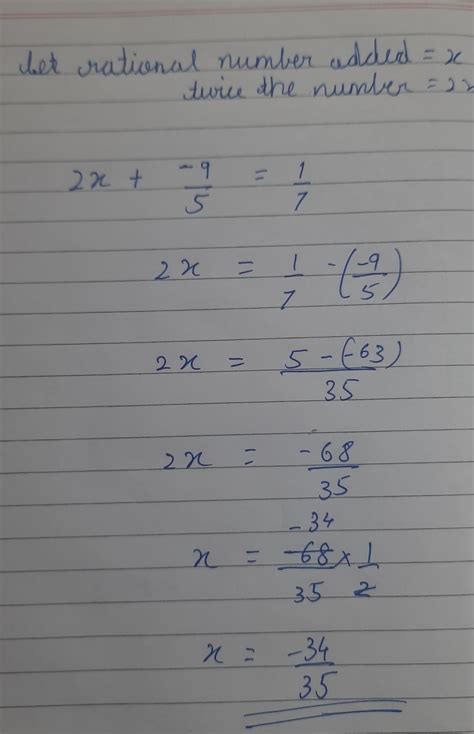 Let rational number added = x
twice the number = 2x
2x + -9/5 = 1/7
2x = 1/7 - (-9/5)
2x = 5 - (-63) / 35
2x = -68/35
-34
x = -68/35 × 1/2
x = -34/35